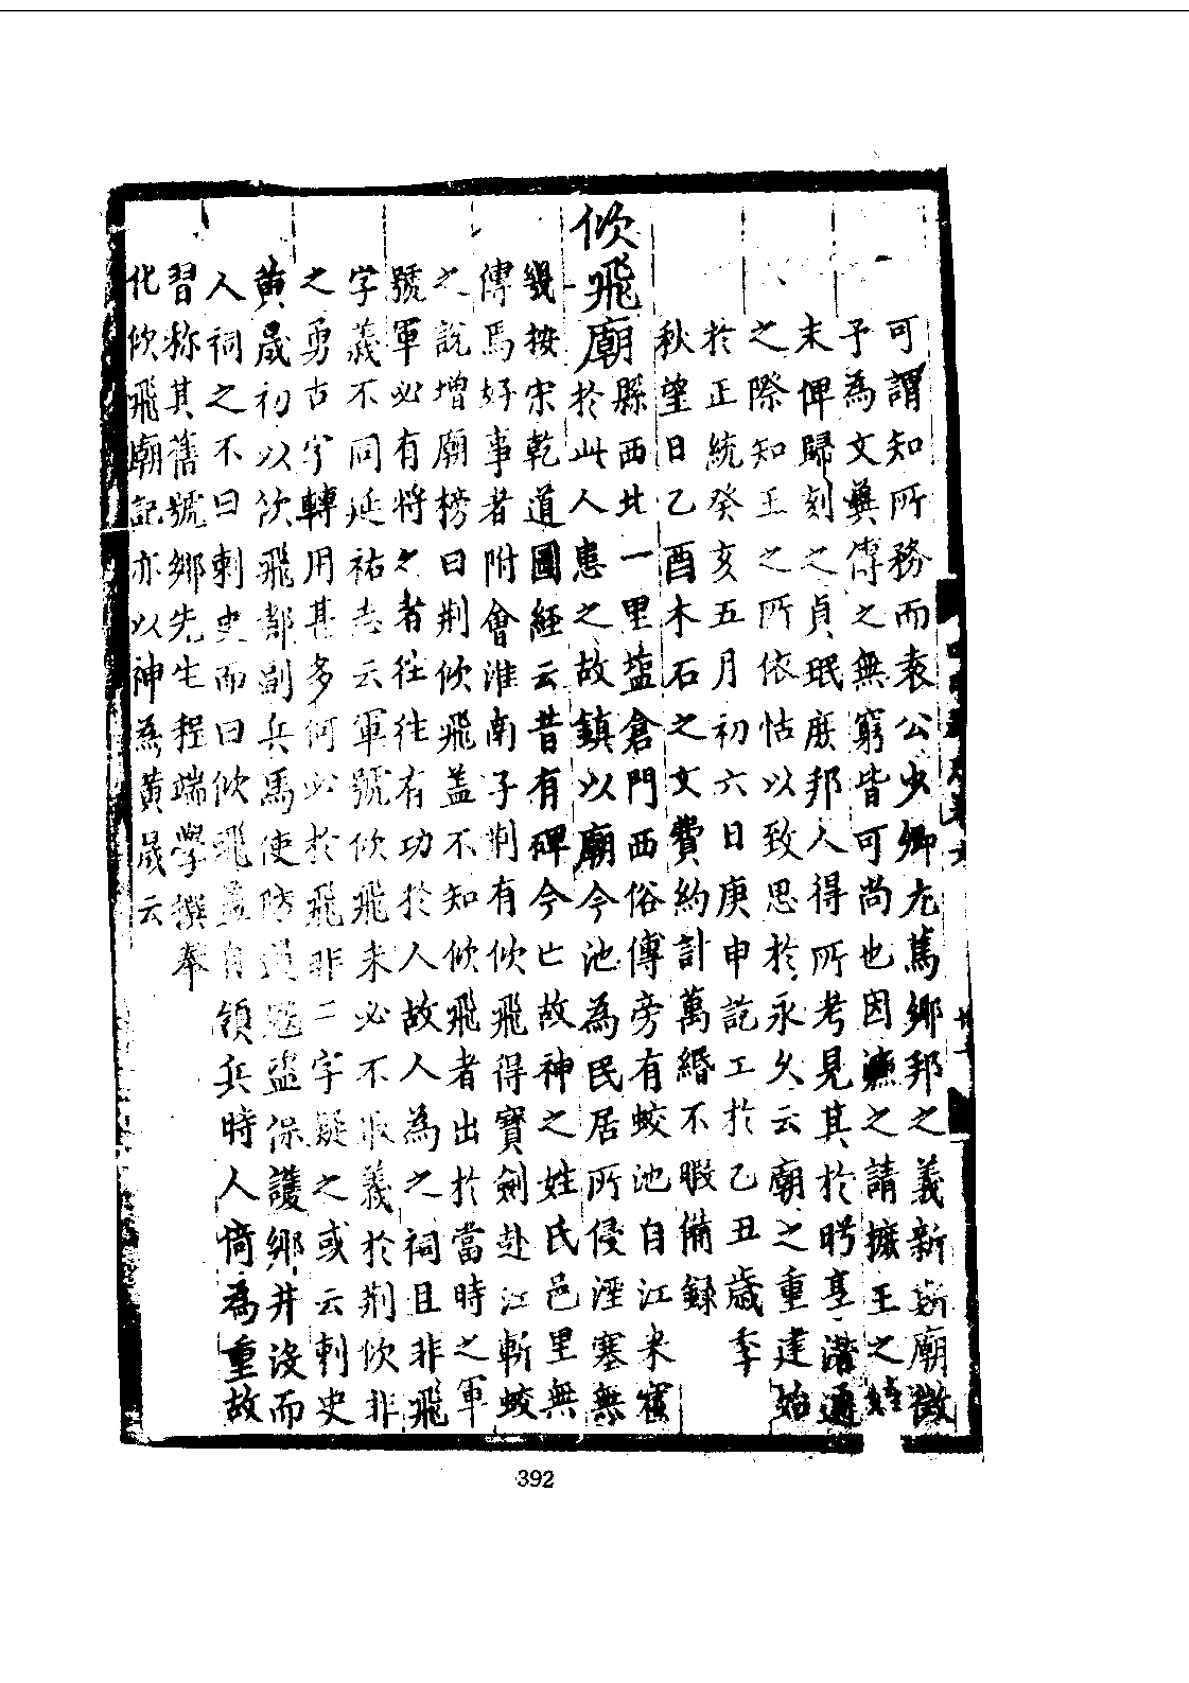 可謂知所務而袁公少卿尤篤鄉邦之義新斯廟徵
予為文冀傳之無窮皆可尚也因漁之請摭王之
末俾歸刻之貞珉庶邦人得所考見其於昭臺潛通
之際知王之所依怙以致思於永久云廟之重建始
於正統癸亥五月初六日庚申訖工於乙丑歲季
秋望日乙酉木石之文費約計萬緡不暇備錄
佽飛廟
縣西北一里塩倉門西俗傳旁有蛟池自江來窟
於此人患之故鎮以廟今池為民居所侵湮塞無
幾按宋乾道圖経云昔有碑今亡故神之姓氏邑里無
傳焉好事者附會淮南子荆有佽飛得寶劍赴江斬蛟
之說增廟榜曰荆佽飛盖不知佽飛者出於當時之軍
號軍必有將之者往往有功於人故人為之祠且非飛
字義不同延祐志云軍號佽飛未必不取義於荆佽非
之勇古字轉用甚多何必於飛非二字疑之或云刺史
黄晟初以佽飛都副兵馬使防遏冦盜保護鄉井沒而
人祠之不曰刺史而曰佽飛盖自領兵時人倚為重故
習称其舊號鄉先生程端學撰奉
化佽飛廟記亦以神為黄晟云
392